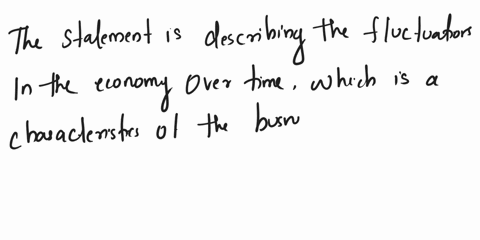 The statement is describing the fluctuations
In the economy Over time, which is a
characteristics of the busn